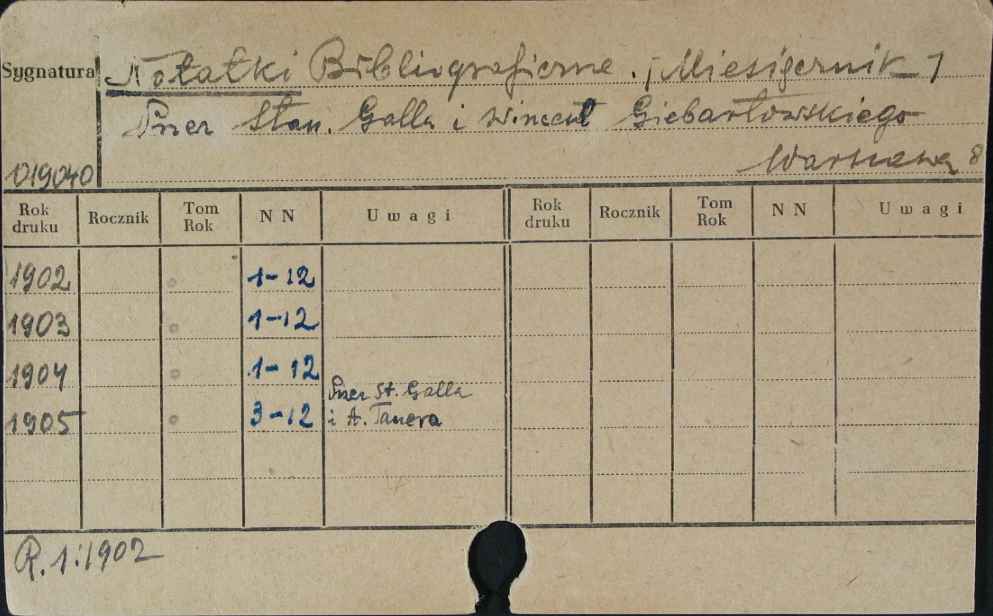 Sygnatura Notatki Bibliograficzne. [Miesięcznik]
Przez Stan. Galla i Wincent Giebartowskiego
019040 Warszawa 8
Rok druku Rocznik Tom Rok N N Uwagi Rok druku Rocznik Tom Rok N N Uwagi
1902 1-12
1903 1-12
1904 1-12
Przez St. Galla
1905 3-12 i A. Tauera
R. 1:1902